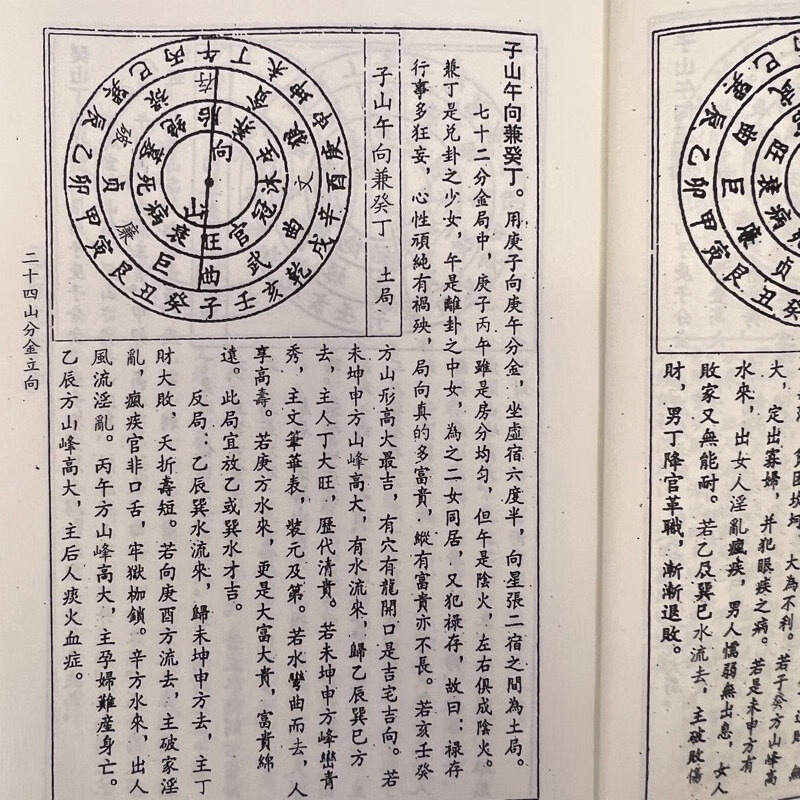 子山午向兼癸丁。用庚子向庚午分金，坐虛宿六度半，向星張二宿之間為土局。
七十二分金局中，庚子丙午雖是房分均勻，但午是陰火，左右俱成陰火。
兼丁是兌卦之少女，午是離卦之中女，為之二女同居，又犯祿存，故曰：祿存
行事多狂妄，心性頑純有禍殃，局向真的多富貴，縱有富貴亦不長。若亥壬癸
子山午向兼癸丁 土局
方山形高大最吉，有穴有龍開口是吉宅吉向。若
未坤申方山峰高大，有水流來，歸乙辰巽巳方
去，主人丁大旺，歷代清貴。若未坤申方峰巒青
秀，主文筆華表，裝元及第。若水彎曲而去，人
享高壽。若庚方水來，更是大富大貴，富貴綿
遠。此局宜放乙或巽水才吉。
反局：乙辰巽水流來，歸未坤申方去，主丁
財大敗，夭折壽短。若向庚酉方流去，主破家淫
亂，瘋疾官非口舌，牢獄枷鎖。辛方水來，出人
風流淫亂。丙午方山峰高大，主孕婦難產身亡。
乙辰方山峰高大，主后人痰火血症。
午丁未坤申庚酉辛戌乾亥壬子癸丑艮寅甲卯乙辰巽巳丙
存貪狼文曲武曲巨廉貞破祿
胎養生沐冠官旺衰病死墓絕
向
山
二十四山分金立向
大，定出寡婦，并犯眼疾之病。若是未申方有
水來，出女人淫亂瘋疾，男人懦弱無出息，女人
敗家又無能耐。若乙辰巽巳水流去，主破敗傷
財，男丁降官革職，漸漸退敗。